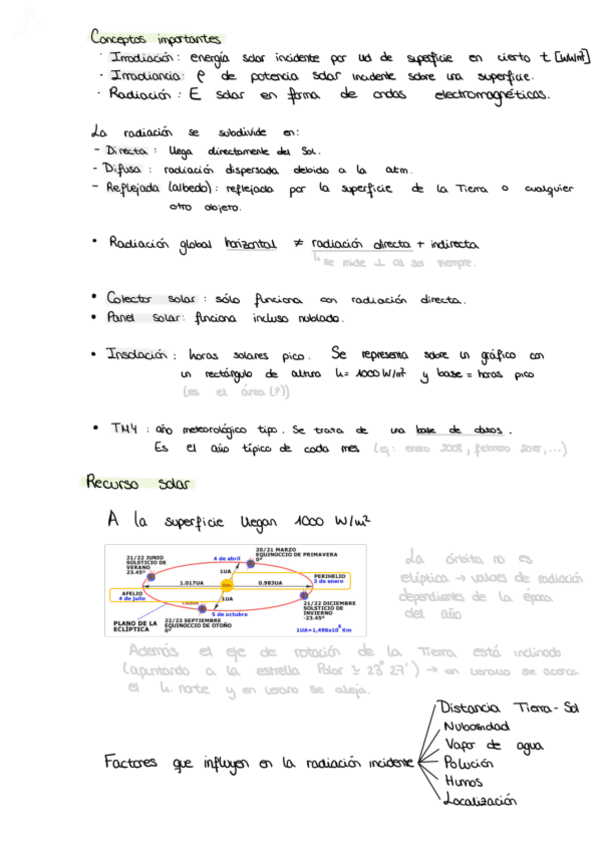 Conceptos importantes
· Irradiación: energía solar incidente por ud de superficie en cierto t [Wh/m²]
· Irradiancia: ρ de potencia solar incidente sobre una superficie.
· Radiación: E solar en forma de ondas electromagnéticas.
La radiación se subdivide en:
- Directa: llega directamente del Sol.
- Difusa: radiación dispersada debido a la atm.
- Reflejada (albedo): reflejada por la superficie de la Tierra o cualquier
otro objeto.
• Radiación global horizontal ≠ radiación directa + indirecta
↳ se mide ⊥ al sol siempre.
• Colector solar: sólo funciona con radiación directa.
• Panel solar: funciona incluso nublado.
• Insolación: horas solares pico. Se representa sobre un gráfico con
un rectángulo de altura h= 1000 W/m² y base = horas pico
(es el área (?))
• TMY: año meteorológico tipo. Se trata de una base de datos.
Es el año típico de cada mes (ej: enero 2008, febrero 2015,...)
Recurso solar
A la superficie llegan 1000 W/m²
21/22 JUNIO
SOLSTICIO DE
VERANO
23.45º
4 de abril
20/21 MARZO
EQUINOCCIO DE PRIMAVERA
0º
1UA
1.017UA
0.983UA
PERIHELIO
3 de enero
AFELIO
4 de julio
1UA
5 de octubre
21/22 DICIEMBRE
SOLSTICIO DE
INVIERNO
-23.45º
PLANO DE LA
ECLÍPTICA
22/23 SEPTIEMBRE
EQUINOCCIO DE OTOÑO
0º
1UA=1,496x10⁸ Km
La órbita no es
elíptica → valores de radiación
dependientes de la época
del año
Además el eje de rotación de la Tierra está inclinado
(apuntando a la estrella Polar 23° 27') → en verano se acerca
el h. norte y en verano se aleja.
Factores que influyen en la radiación incidente
Distancia Tierra-Sol
Nubosidad
Vapor de agua
Polución
Humos
Localización